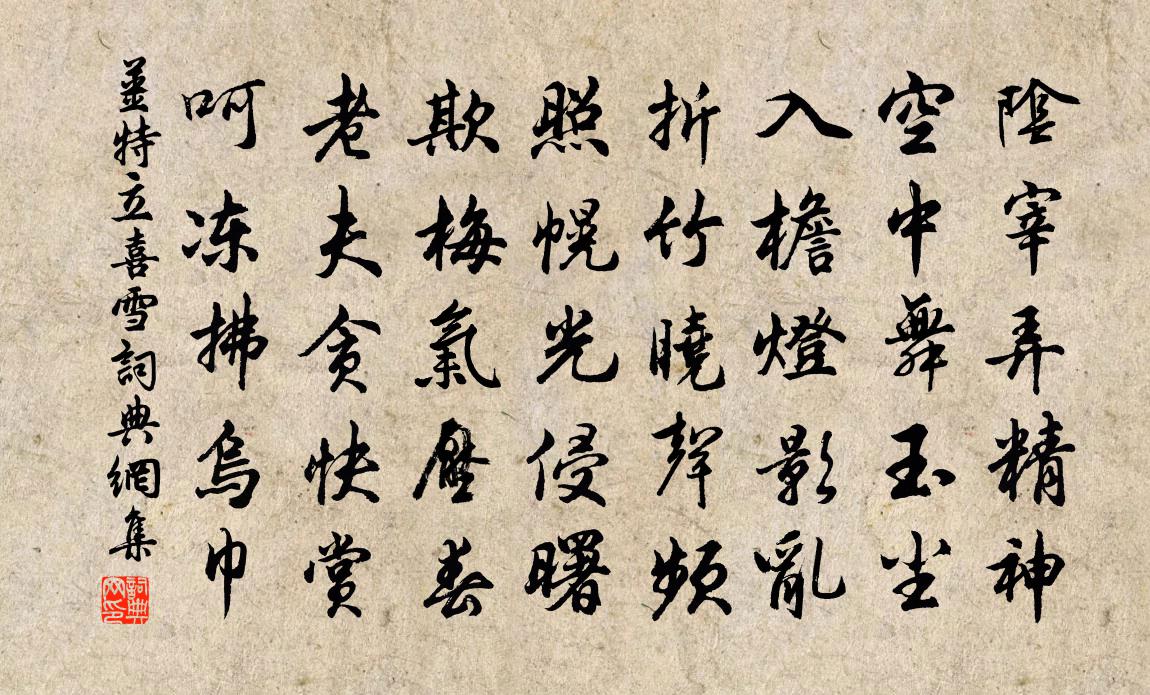 陰宰弄精神
空中舞玉尘
入檐燈影亂
折竹曉聲頻
照幌光侵曙
欺梅氣壓春
老夫貪快賞
呵冻拂烏巾
姜特立喜雪詞典網集
詞典
网印